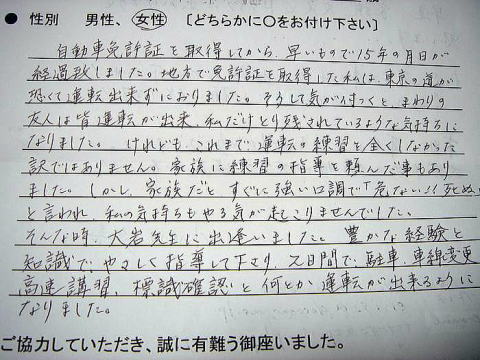 ● 性別　男性、女性　[どちらかに〇をお付け下さい]
自動車免許証を取得してから、早いもので15年の月日が
経過致しました。地方で免許証を取得した私は、東京の道が
恐くて運転出来ずにおりました。そうして気が付くと、まわりの
友人は皆運転が出来、私だけとり残されているような気持ちに
なりました。けれども、これまで運転の練習を全くしなかった
訳ではありません。家族に練習の指導を頼んだ事もあり
ました。しかし、家族だと すぐに強い口調で「危ない!!死ぬ
と言われ、私の気持ちもやる気が起こりませんでした。
そんな時、大岩先生に出逢いました。豊かな経験と
知識で、やさしく指導して下さり、2日間で、駐車、車線変更
高速講習、標識確認と何とか運転が出来るように
なりました。
ご協力していただき、誠に有難う御座いました。